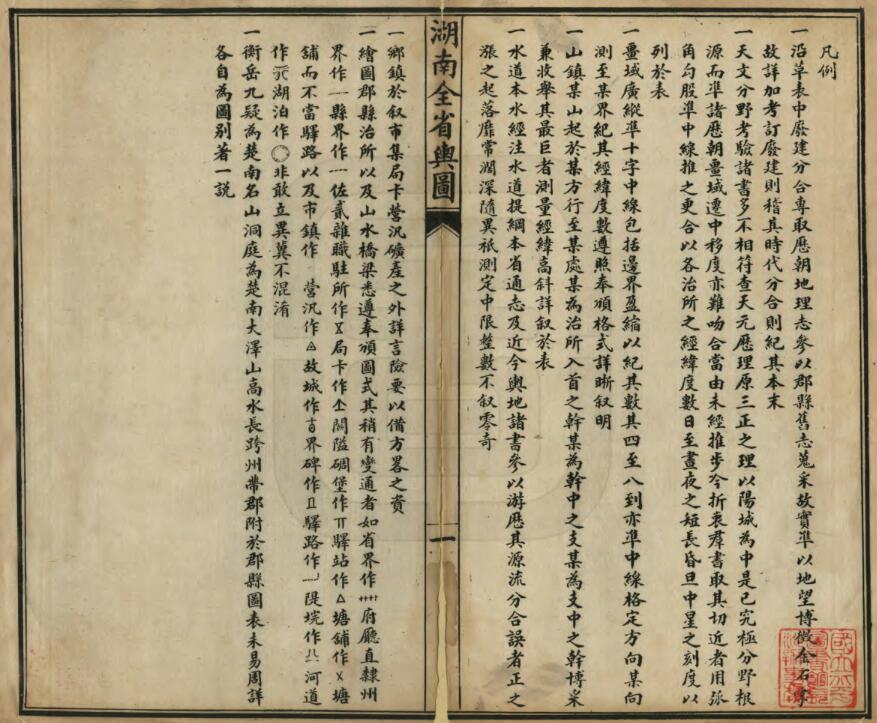 凡例
一沿革表中廢建分合專取歷朝地理志參以郡縣舊志蒐采故實準以地望博徵金石字
故詳加考訂廢建則稽其時代分合則紀其本末
一天文分野考驗諸書多不相符查天元歷理原三正之理以陽城為中是已究極分野根
源而準諸歷朝畺域遷中移度亦難吻合當由未經推步今折衷羣書取其切近者用弧
角勾股準中線推之更合以各治所之經緯度數日至晝夜之短長昏旦中星之刻度以
列於表
一畺域廣縱準十字中線包括邊界盈縮以紀其數其四至八到亦準中線格定方向某向
測至某界紀其經緯度數遵照奉頒格式詳晰叙明
一山鎮某山起於某方行至某處某為治所入首之幹某為幹中之支某為支中之幹博采
兼收舉其最巨者測量經緯高斜詳叙於表
一水道本水經注水道提綱本省通志及近今輿地諸書參以游歷其源流分合誤者正之
漲之起落靡常濶深隨異祇測定中限整數不叙零奇
湖南全省輿圖
一
一鄉鎮於叙市集局卡營汛礦產之外詳言險要以備方畧之資
一繪圖郡縣治所以及山水橋梁悉遵奉頒圖式其稍有變通者如省界作府廳直隸州
界作縣界作佐貳雜職駐所作局卡作關隘碉堡作驛站作塘舖作塘
舖而不當驛路以及市鎮作營汛作故城作界碑作驛路作隄垸作河道
作湖泊作○非敢立異冀不混淆
一衡岳九疑為楚南名山洞庭為楚南大澤山高水長跨州帶郡附於郡縣圖表未易周詳
各自為圖別著一說